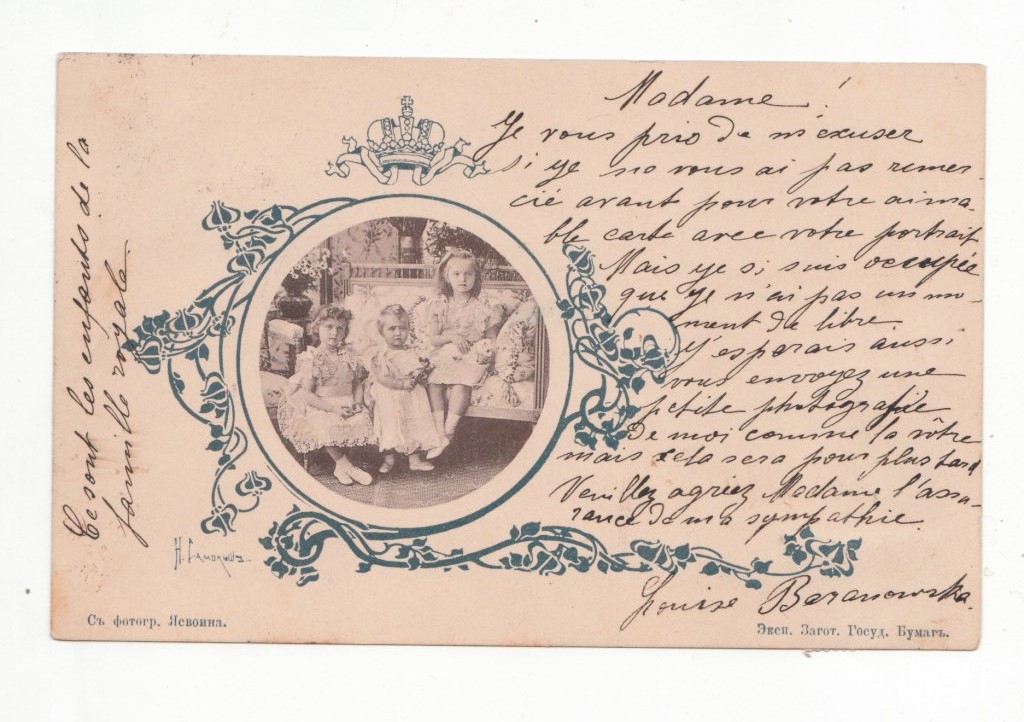 Madame!
Je vous prie de m'excuser
si je ne vous ai pas remer-
cié avant pour votre aima-
ble carte avec votre portrait
Mais je si suis occupée
que je n'ai pas un mo-
ment de libre.
J'esperais aussi
vous envoyez une
petite photografie
de moi comme la vôtre
mais cela sera pour plus tard
Veuillez agréez Madame l'assu-
rance de ma sympathie.
Louise Beranowska.
Ce sont les enfants de la
famille royale.
Н. Самокишъ
Съ фотогр. Ясвоина.
Эксп. Загот. Госуд. Бумагъ.